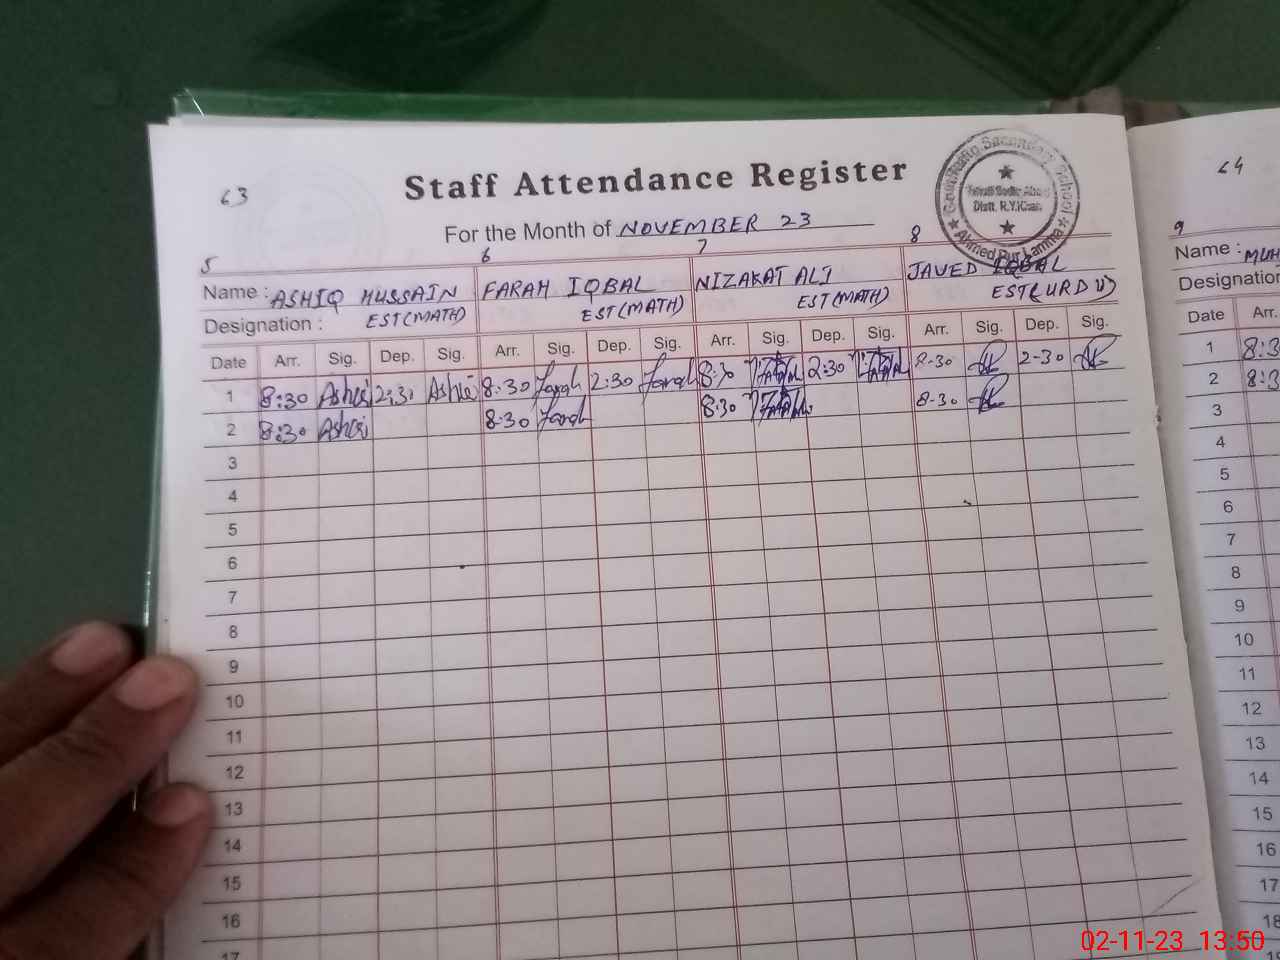 63
Staff Attendance Register
For the Month of NOVEMBER 23
5 6 7 8
Name : ASHIQ HUSSAIN FARAH IQBAL NIZAKAT ALI JAVED IQBAL
Designation : EST(MATH) EST(MATH) EST(MATH) EST(URDU)
Date Arr. Sig. Dep. Sig. Arr. Sig. Dep. Sig. Arr. Sig. Dep. Sig. Arr. Sig. Dep. Sig.
1 8:30 2:30 8.30 Farah 2:30 Farah 8:30 2:30 8-30 2-30
2 8:30 8.30 Farah 8:30 8-30
3
4
5
6
7
8
9
10
11
12
13
14
15
16
17
Secondary School
Ahmed Pur Lamma
Distt. R.Y.Khan
64
9
Name : MUH
Designation
Date Arr.
1 8:3
2 8:3
3
4
5
6
7
8
9
10
11
12
13
14
15
16
17
18
02-11-23 13:50